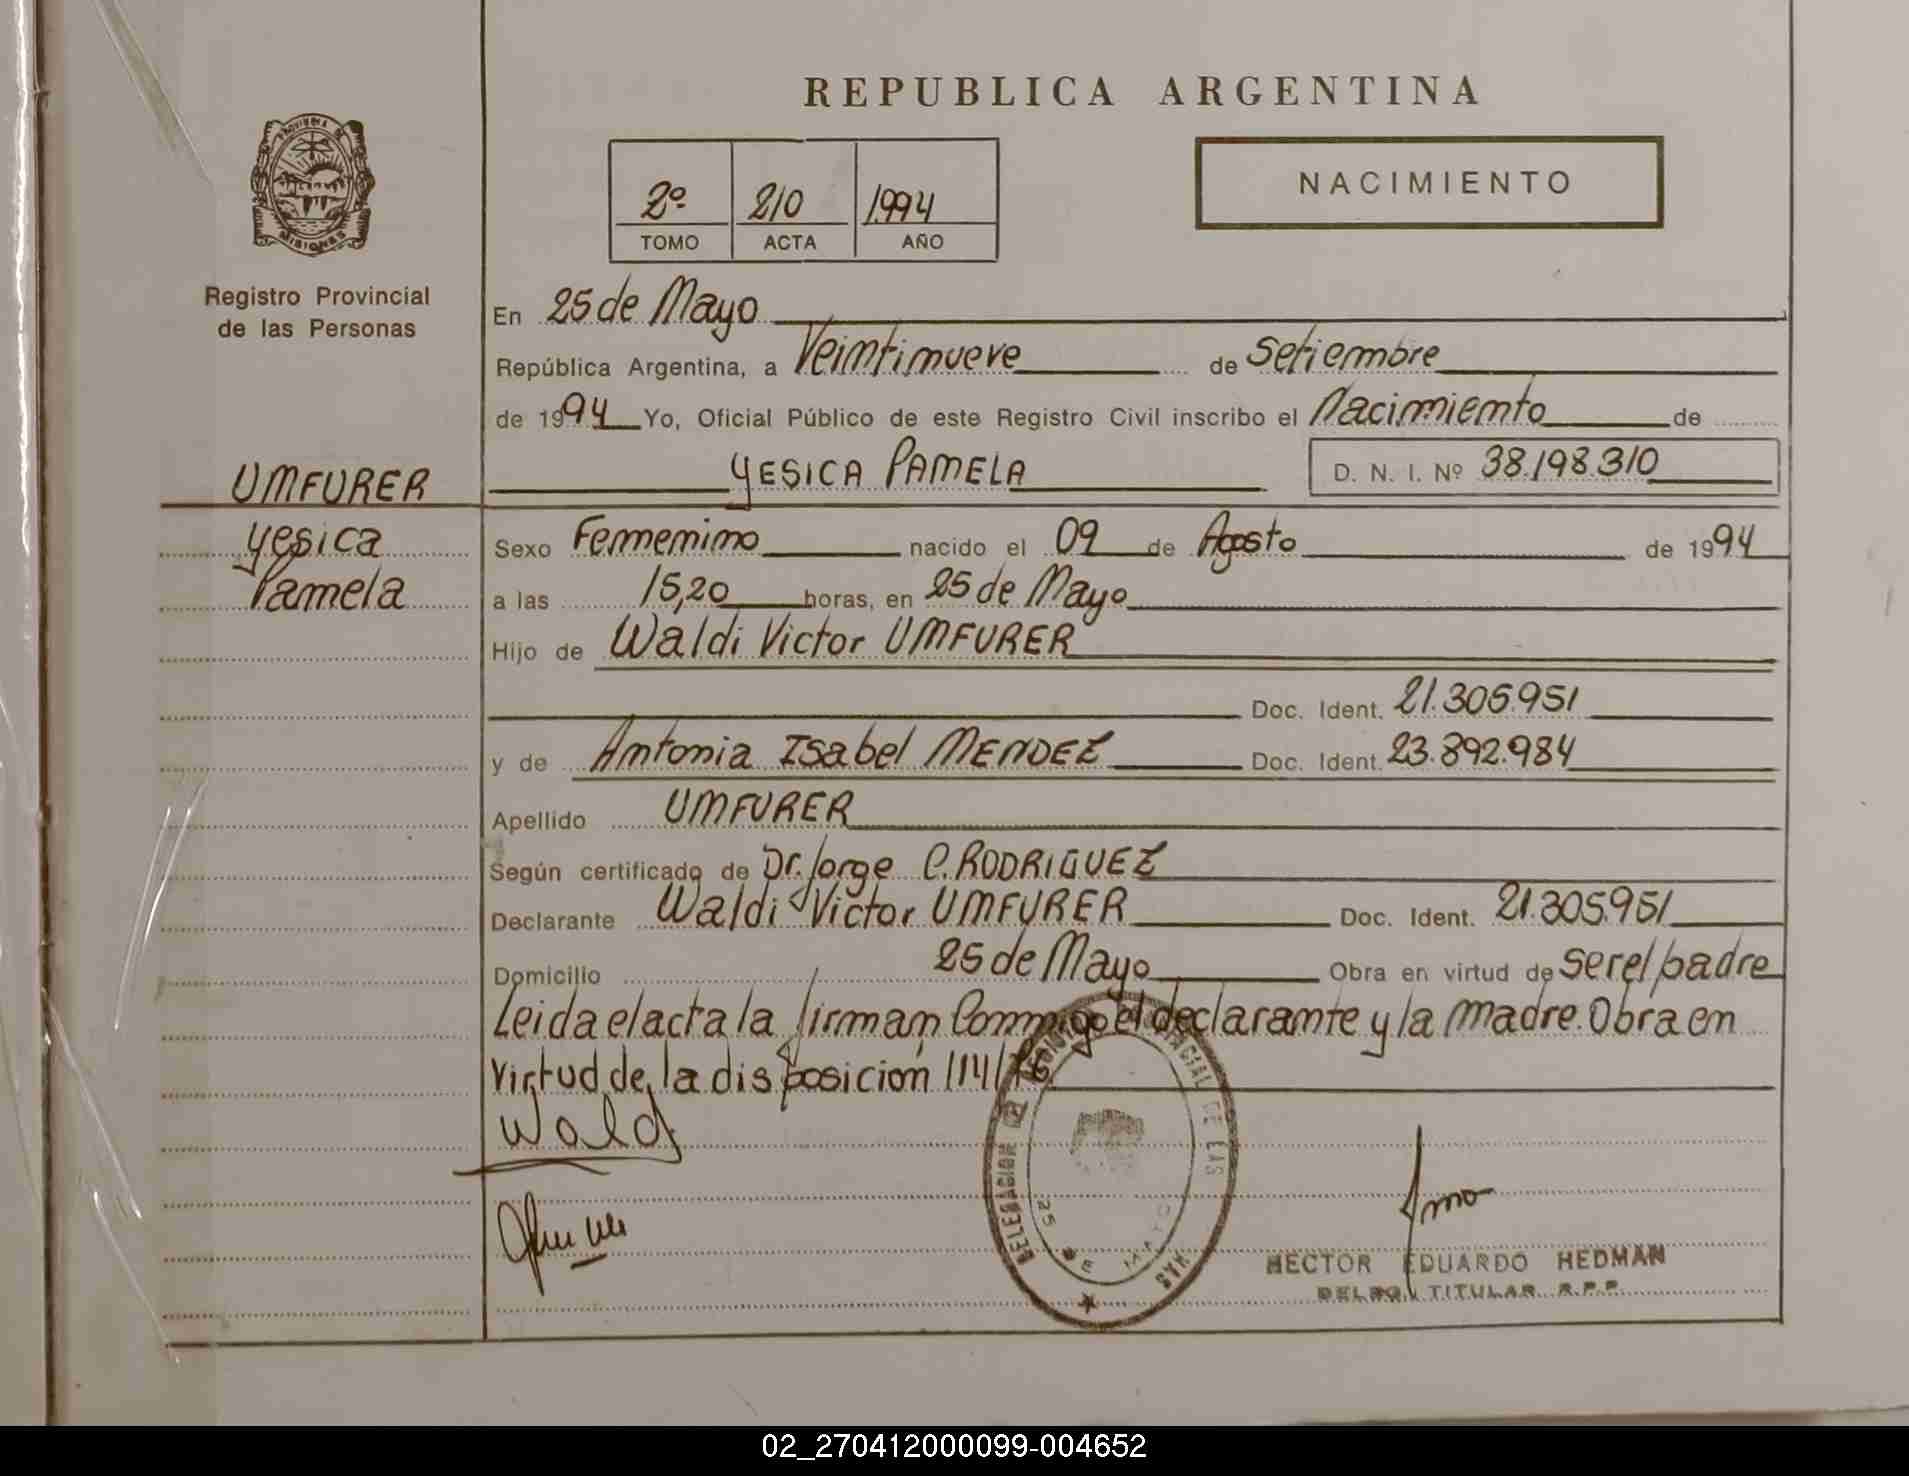 REPUBLICA ARGENTINA
PROVINCIA DE
MISIONES
Registro Provincial
de las Personas
2º 210 1994
TOMO ACTA AÑO
NACIMIENTO
En 25 de Mayo
República Argentina, a Veintinueve de Setiembre
de 1994 Yo, Oficial Público de este Registro Civil inscribo el Nacimiento de
UMFURER
Yesica
Pamela
YESICA PAMELA D. N. I. Nº 38.198.310
Sexo Femenino nacido el 09 de Agosto de 1994
a las 15,20 horas, en 25 de Mayo
Hijo de Waldi Victor UMFURER
Doc. Ident. 21.305.951
y de Antonia Isabel MENDEZ Doc. Ident. 23.892.984
Apellido UMFURER
Según certificado de Dr. Jorge C. RODRIGUEZ
Declarante Waldi Victor UMFURER Doc. Ident. 21.305.951
Domicilio 25 de Mayo Obra en virtud de ser el padre
Leida el acta la firman Conmigo el declarante y la madre. Obra en
virtud de la disposición 114/76
Wald
DELEGACION REGISTRO PROVINCIAL DE LAS
25 DE MAYO
HECTOR EDUARDO HEDMAN
DELEG. TITULAR R.P.P.
02_270412000099-004652